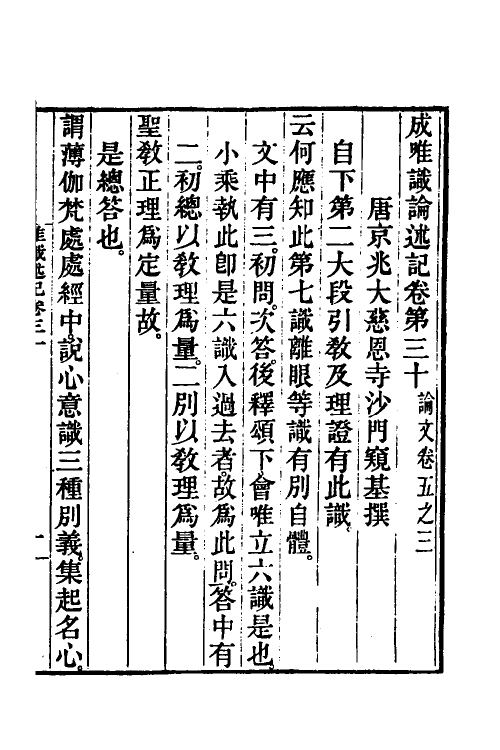 成唯識論述記卷第三十 論文卷五之三
唐京兆大慈恩寺沙門窺基撰
自下第二大段引敎及理證有此識。
云何應知此第七識離眼等識有別自體。
文中有三。初問。次答。後釋頌下會唯立六識是也。
小乘執此卽是六識入過去者。故爲此問。答中有
二。初總以敎理爲量。二別以敎理爲量。
聖敎正理爲定量故。
是總答也。
謂薄伽梵處處經中。說心意識三種別義。集起名心。
唯識述記卷三十 一